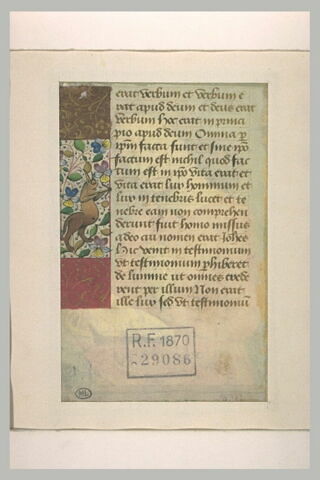 erat verbum et verbum e
rat apud deum et deus erat
verbum Hoc erat in princi
pio apud deum Omnia p
ipm facta sunt et sine ipo
factum est nichil quod fac
tum est in ipo vita erat et
vita erat lux hominum et
lux in tenebris lucet et te
nebre eam non comprehen
derunt fuit homo missus
a deo cui nomen erat Iohes
Hic venit in testimonium
vt testimonium phiberet
de lumine vt omnes crede
rent per illum Non erat
ille lux sed vt testimoniu
R.F. 1870
29086
ML